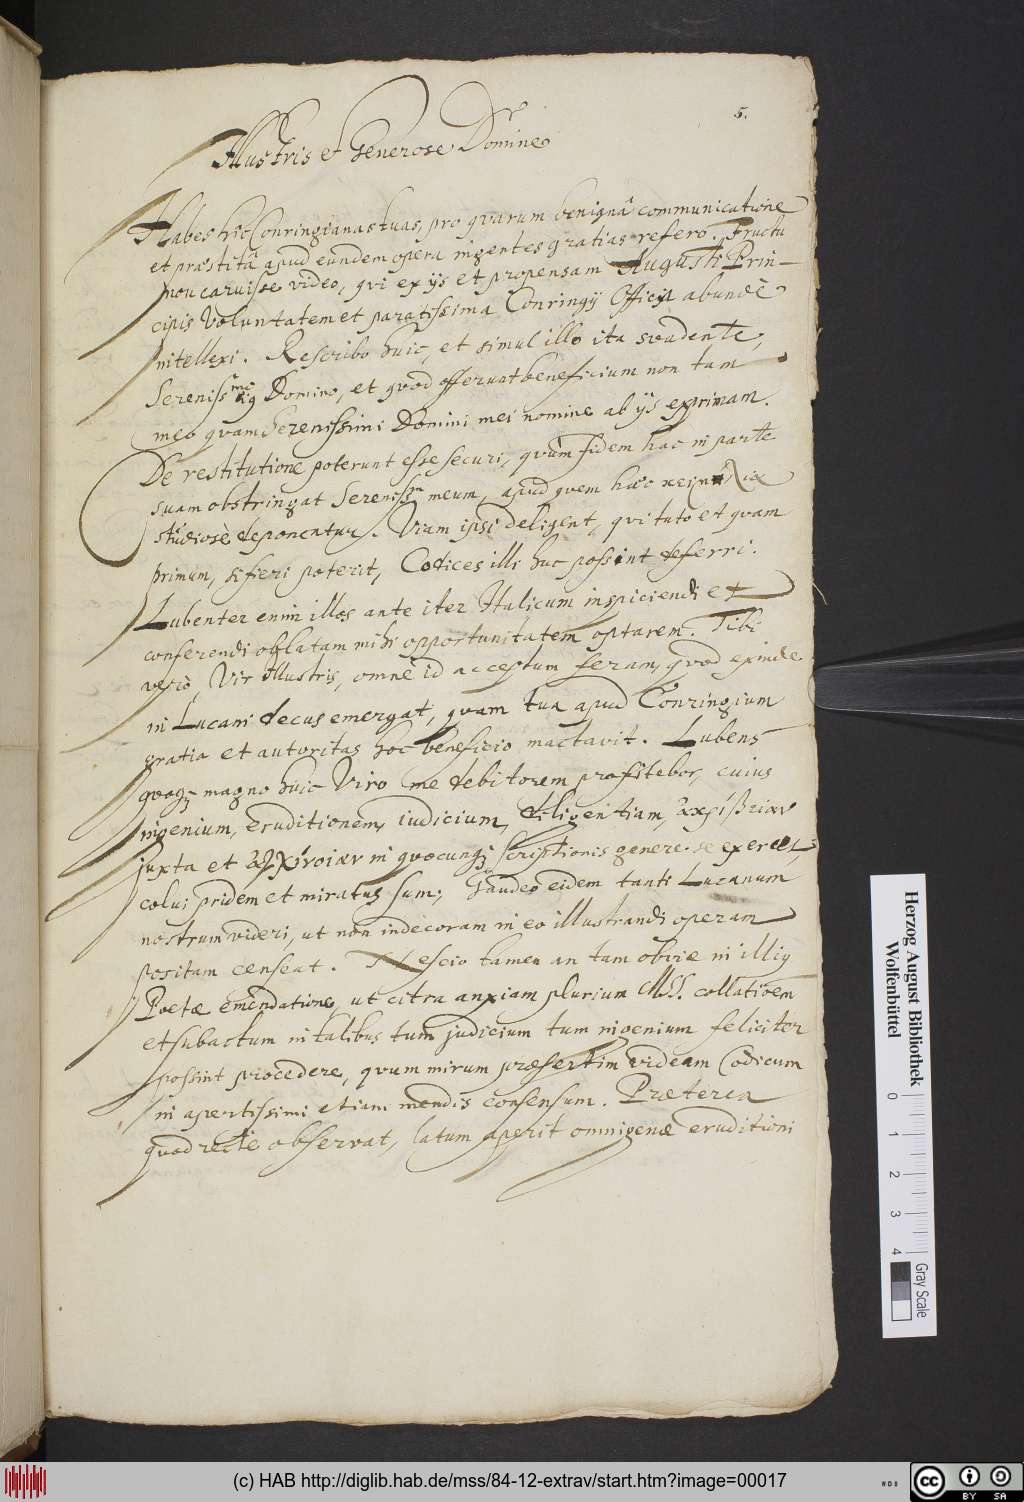 5.
Illustris et Generose Domine
Habes hîc Conringianas tuas, pro qvarum benignâ communicatione
et præstitâ apud eundem opera ingentes gratias refero. Fructu
non caruisse video, qvi ex ijs et propensam Augusti Prin-
cipis Voluntatem et paratissima Conringij Officia abundè
intellexi. Rescribo huic, et simul illo ita svadente,
Sereniss Domino, et qvod offerunt beneficium non tam
meo qvam Serenissimi Domini mei nomine ab ijs exprimam.
De restitutione poterunt esse securi, qvùm fidem hac in parte
suam obstringat Sereniss meum, apud qvem hæc
studiosè deponentur. Viam ipsi deligent, qvi tuto et qvam
primum, si fieri poterit, Codices illi huc possint deferri.
Lubenter enim illos ante iter Italicum inspiciendi et
conferendi oblatam mihi opportunitatem optarem. Tibi
verò, Vir Illustris, omne id acceptum feram, qvod exinde
in Lucani decus emergat, qvam tua apud Conringium
gratia et autoritas hoc beneficio mactavit. Lubens
qvoqꝫ magno huic Viro me debitorem profitebor, cuius
ingenium, eruditionem, iudicium, diligentiam, ἀκρίβειαν
juxta et ἀγχίνοιαν in qvocunqꝫ scriptionis genere se exercet,
colui pridem et miratus sum; Gaudeo eidem tanti Lucanum
nostrum videri, ut non indecoram in eo illustrandi operam
positam censeat. Nescio tamen an tam obviæ in illius
Poetæ emendatione, ut citra anxiam plurium MSS. collationem
et subactum in talibus tum judicium tum ingenium feliciter
possint procedere, qvum mirum præsertim videam Codicum
in apertissimi etiam mendis consensum. Præterea
qvod recte observat, latum aperit omnigenæ eruditioni
Herzog August Bibliothek
Wolfenbüttel
0 1 2 3 4
Gray Scale
(c) HAB http://diglib.hab.de/mss/84-12-extrav/start.htm?image=00017
cc BY SA